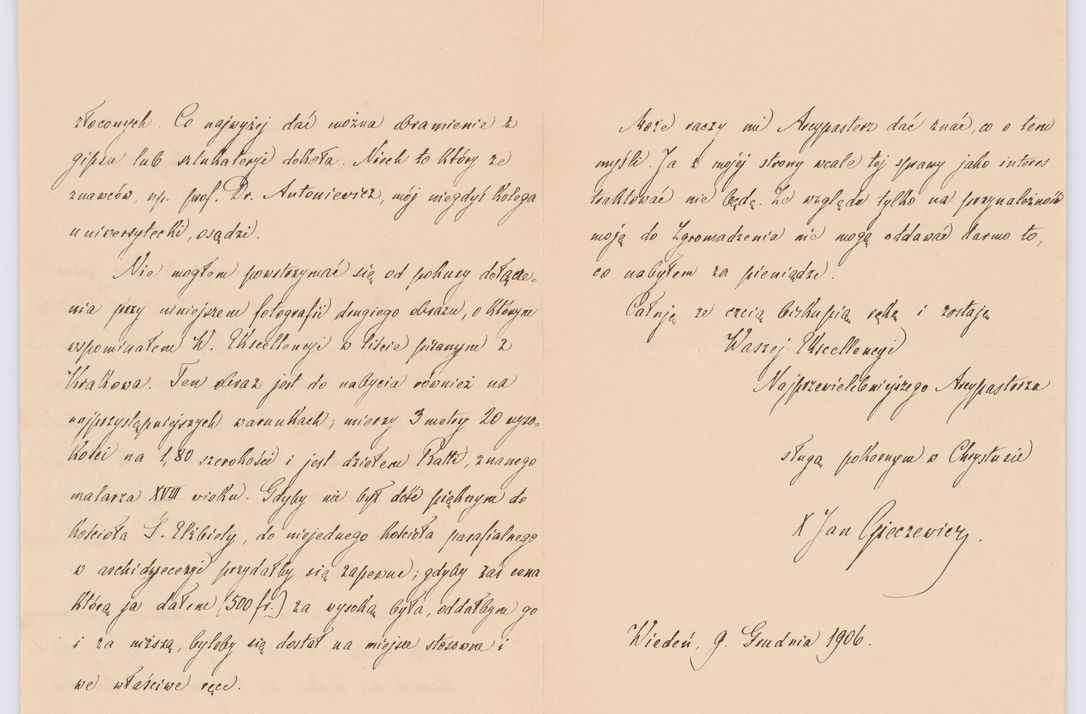 złoconych. Co najwyżej dać można obramienie z
gipsu lub sztukateryi dokoła. Niech to który ze
znawców, np. prof. Dr. Antoniewicz, mój niegdyś kolega
uniwersytecki, osądzi.
Nie mogłem powstrzymać się od pokusy dołącze-
nia przy niniejszem fotografii drugiego obrazu, o którym
wspominałem W. Ekscellencyi w liście pisanym z
Krakowa. Ten obraz jest do nabycia również na
najprzystępniejszych warunkach; mierzy 3 metry 20 wyso-
kości na 1,80 szerokości i jest dziełem Ratti, znanego
malarza XVIII wieku. Gdyby nie był dość pięknym do
kościoła Ś. Elżbiety, do niejednego kościoła parafialnego
w archidyecezyi przydałby się zapewne; gdyby zaś cena
którą ja dałem (500 fr.) za wysoką była, oddałbym go
i za niższą, byleby się dostał na miejsce stosowne i
we właściwe ręce.
Może raczy mi Arcypasterz dać znać, co o tem
myśli. Ja z mojéj strony wcale tej sprawy jako interes
traktować nie będę. Ze względu tylko na przynależność
moją do Zgromadzenia nie mogę oddawać darmo to,
co nabyłem za pieniądze.
Całuję ze czcią biskupią rękę i zostaję
Waszej Ekscellencyi
Najprzewielebniejszego Arcypasterza
sługą pokornym w Chrystusie
X Jan
Wiedeń, 9. Grudnia 1906.